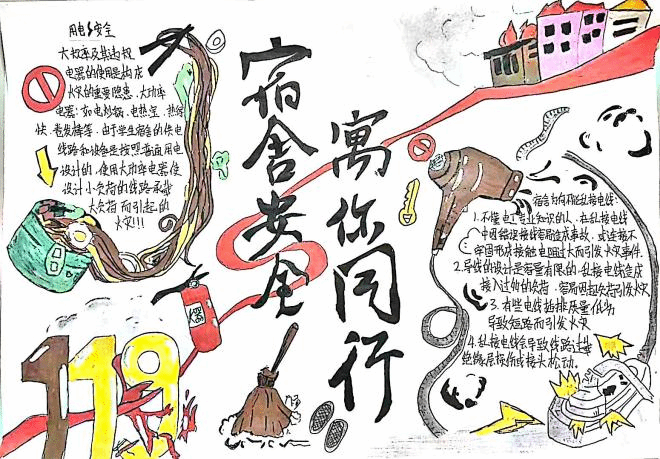 用电安全
大功率及其劣质
电器的使用是构成
火灾的重要隐患，大功率
电器：如电炒锅、电热毯、热得
快、卷发棒等，由于学生宿舍的供电
线路和设备是按照普通用电
设计的，使用大功率电器使
设计小负荷的线路承载
大负荷而引起的
火灾!!!
宿舍安全
寓你同行
宿舍为何不能乱接电线：
1.不懂电工专业知识的人，在乱接电线
中因错误接线容易造成事故，或连接不
牢固形成接触电阻过大而引发火灾事件
2.导线的设计是容量有限的，乱接电线造成
接入过分的负荷，容易因超负荷引发火灾
3.有些电线插排质量低劣
导致短路而引发火灾
4.乱接电线会导致线路过载
绝缘层损伤或接头松动。
119